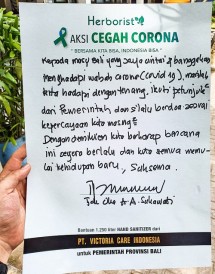 Herborist
AKSI CEGAH CORONA
"BERSAMA KITA BISA, INDONESIA BISA"
Kepada masy Bali yang saya cintai & banggakan
Menghadapi wabah corona (Covid 19), marilah
kita hadapi dengan tenang, ikuti petunjuk
dari Pemerintah dan selalu berdoa sesuai
kepercayaan kita masing²
Dengan demikian kita berharap bencana
ini segera berlalu dan kita semua memu-
lai kehidupan baru, Suksema.
Tjok Oka A.A. Sukawati
Bantuan 1.200 Botol HAND SANITIZER dari
PT. VICTORIA CARE INDONESIA
untuk PEMERINTAH PROVINSI BALI